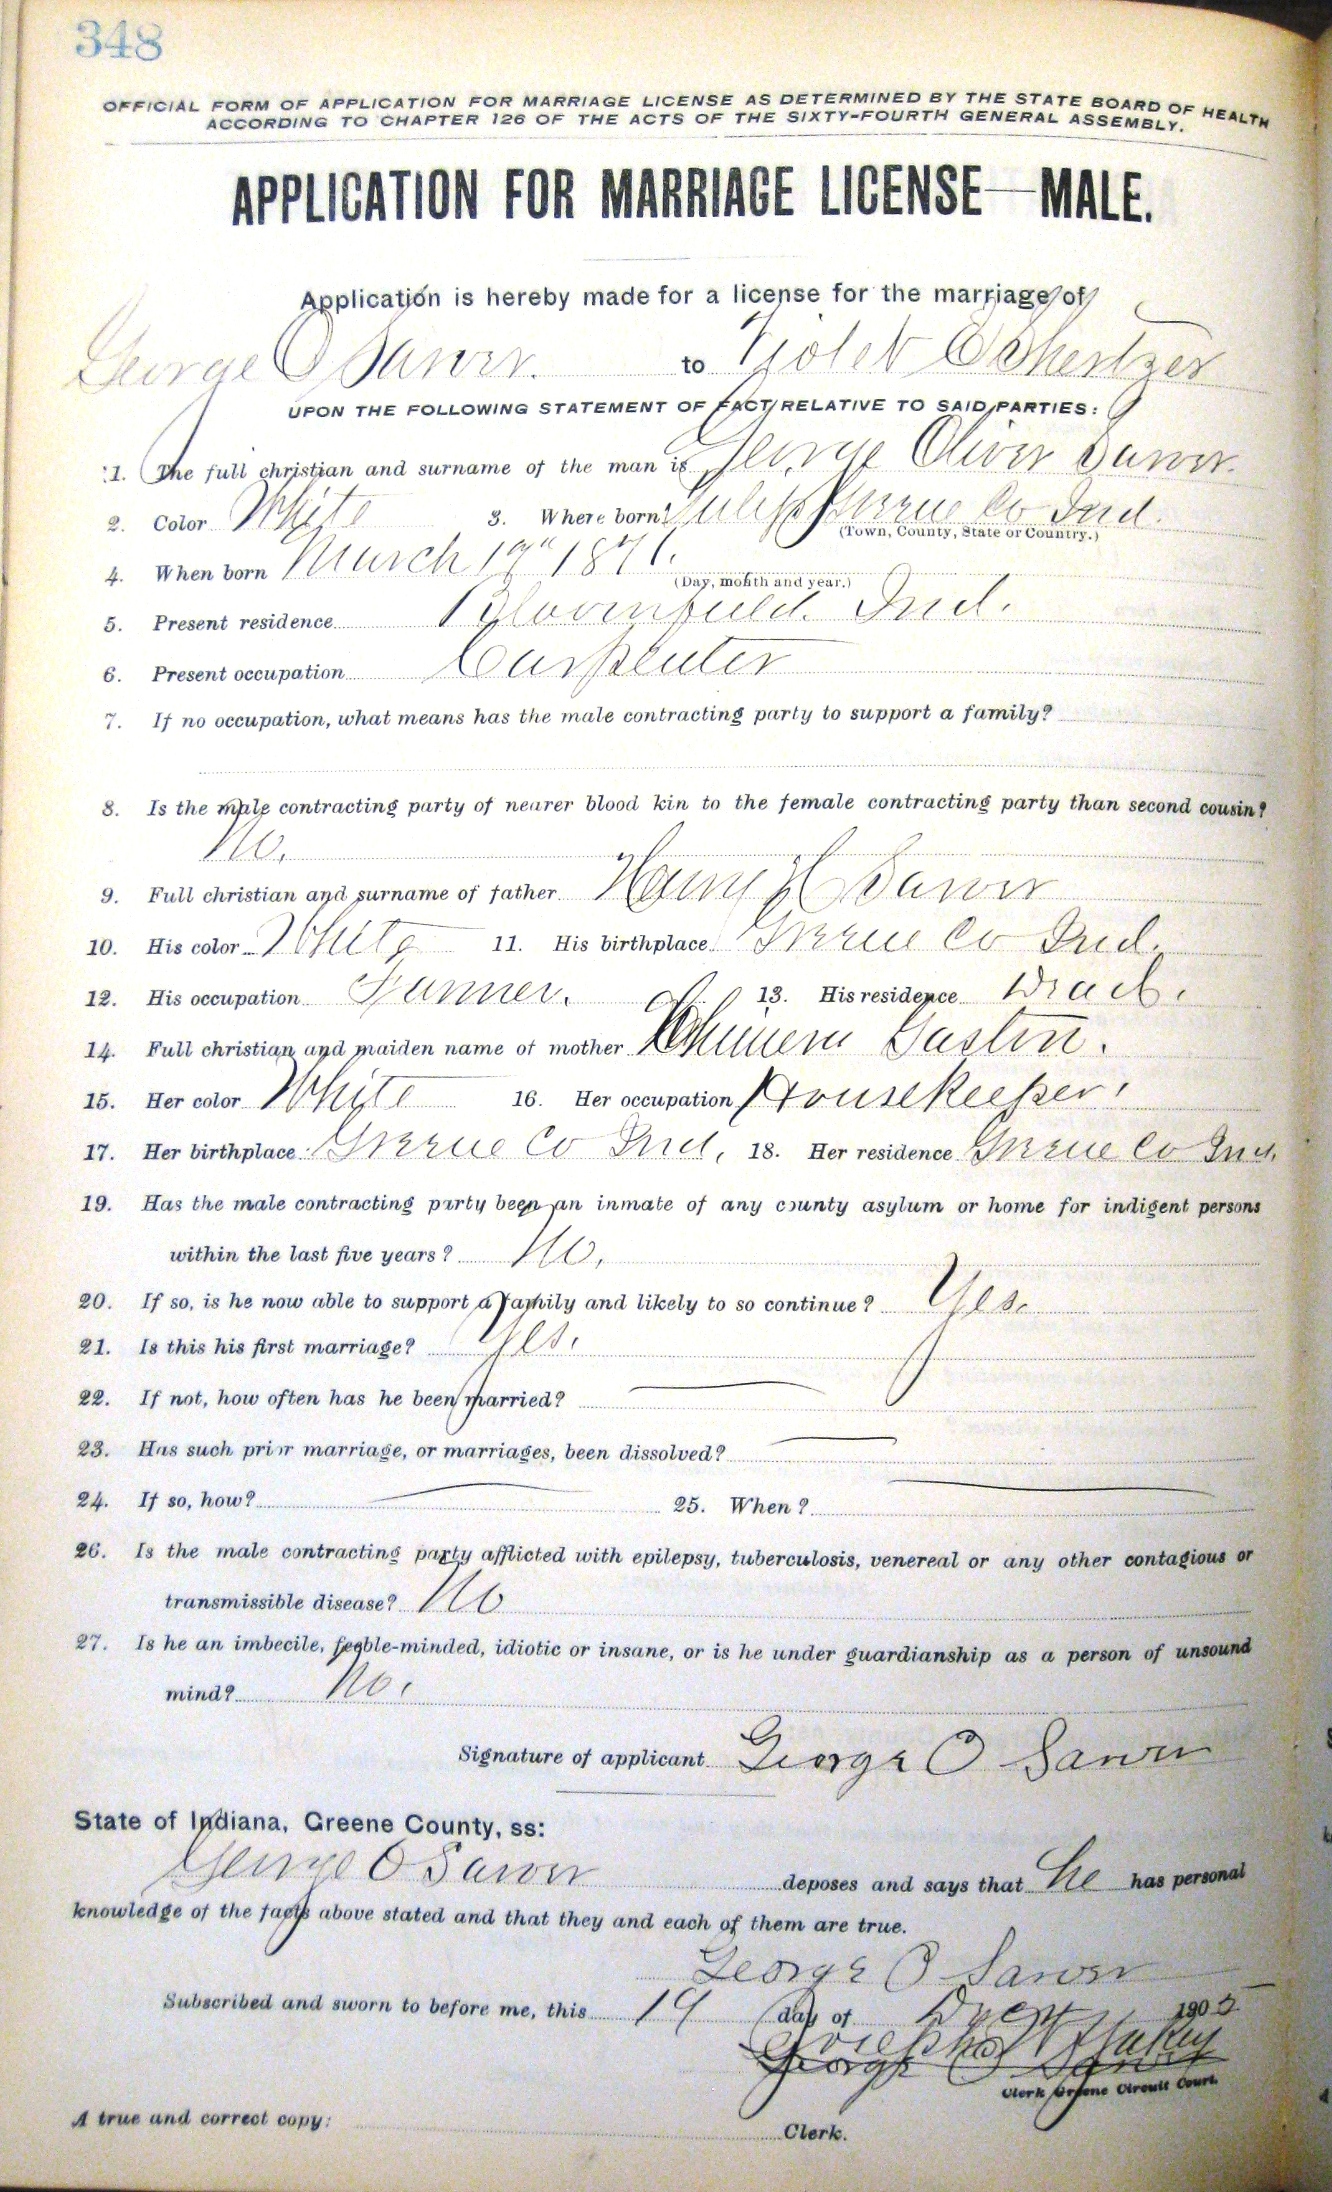 348
OFFICIAL FORM OF APPLICATION FOR MARRIAGE LICENSE AS DETERMINED BY THE STATE BOARD OF HEALTH
ACCORDING TO CHAPTER 126 OF THE ACTS OF THE SIXTY-FOURTH GENERAL ASSEMBLY.
APPLICATION FOR MARRIAGE LICENSE—MALE.
Application is hereby made for a license for the marriage of
George O Sarver. to Violet E Shertzer
UPON THE FOLLOWING STATEMENT OF FACT RELATIVE TO SAID PARTIES:
1. The full christian and surname of the man is George Oliver Sarver.
2. Color White 3. Where born? Tulip Greene Co Ind.
(Town, County, State or Country.)
4. When born March 19" 1871.
(Day, month and year.)
5. Present residence Bloomfield. Ind.
6. Present occupation Carpenter
7. If no occupation, what means has the male contracting party to support a family?
8. Is the male contracting party of nearer blood kin to the female contracting party than second cousin?
No.
9. Full christian and surname of father H Sarver
10. His color White 11. His birthplace Greene Co Ind.
12. His occupation Farmer. 13. His residence Dead.
14. Full christian and maiden name of mother Gastin.
15. Her color White 16. Her occupation Housekeeper.
17. Her birthplace Greene Co Ind. 18. Her residence Greene Co Ind.
19. Has the male contracting party been an inmate of any county asylum or home for indigent persons
within the last five years? No.
20. If so, is he now able to support a family and likely to so continue? Yes.
21. Is this his first marriage? Yes.
22. If not, how often has he been married?
23. Has such prior marriage, or marriages, been dissolved?
24. If so, how? 25. When?
26. Is the male contracting party afflicted with epilepsy, tuberculosis, venereal or any other contagious or
transmissible disease? No
27. Is he an imbecile, feeble-minded, idiotic or insane, or is he under guardianship as a person of unsound
mind? No.
Signature of applicant George O Sarver
State of Indiana, Greene County, ss:
George O Sarver deposes and says that he has personal
knowledge of the facts above stated and that they and each of them are true.
George O Sarver
Subscribed and sworn to before me, this 19 day of Decr 1905
Joseph W
George O Sarver
Clerk Greene Circuit Court.
A true and correct copy: Clerk.